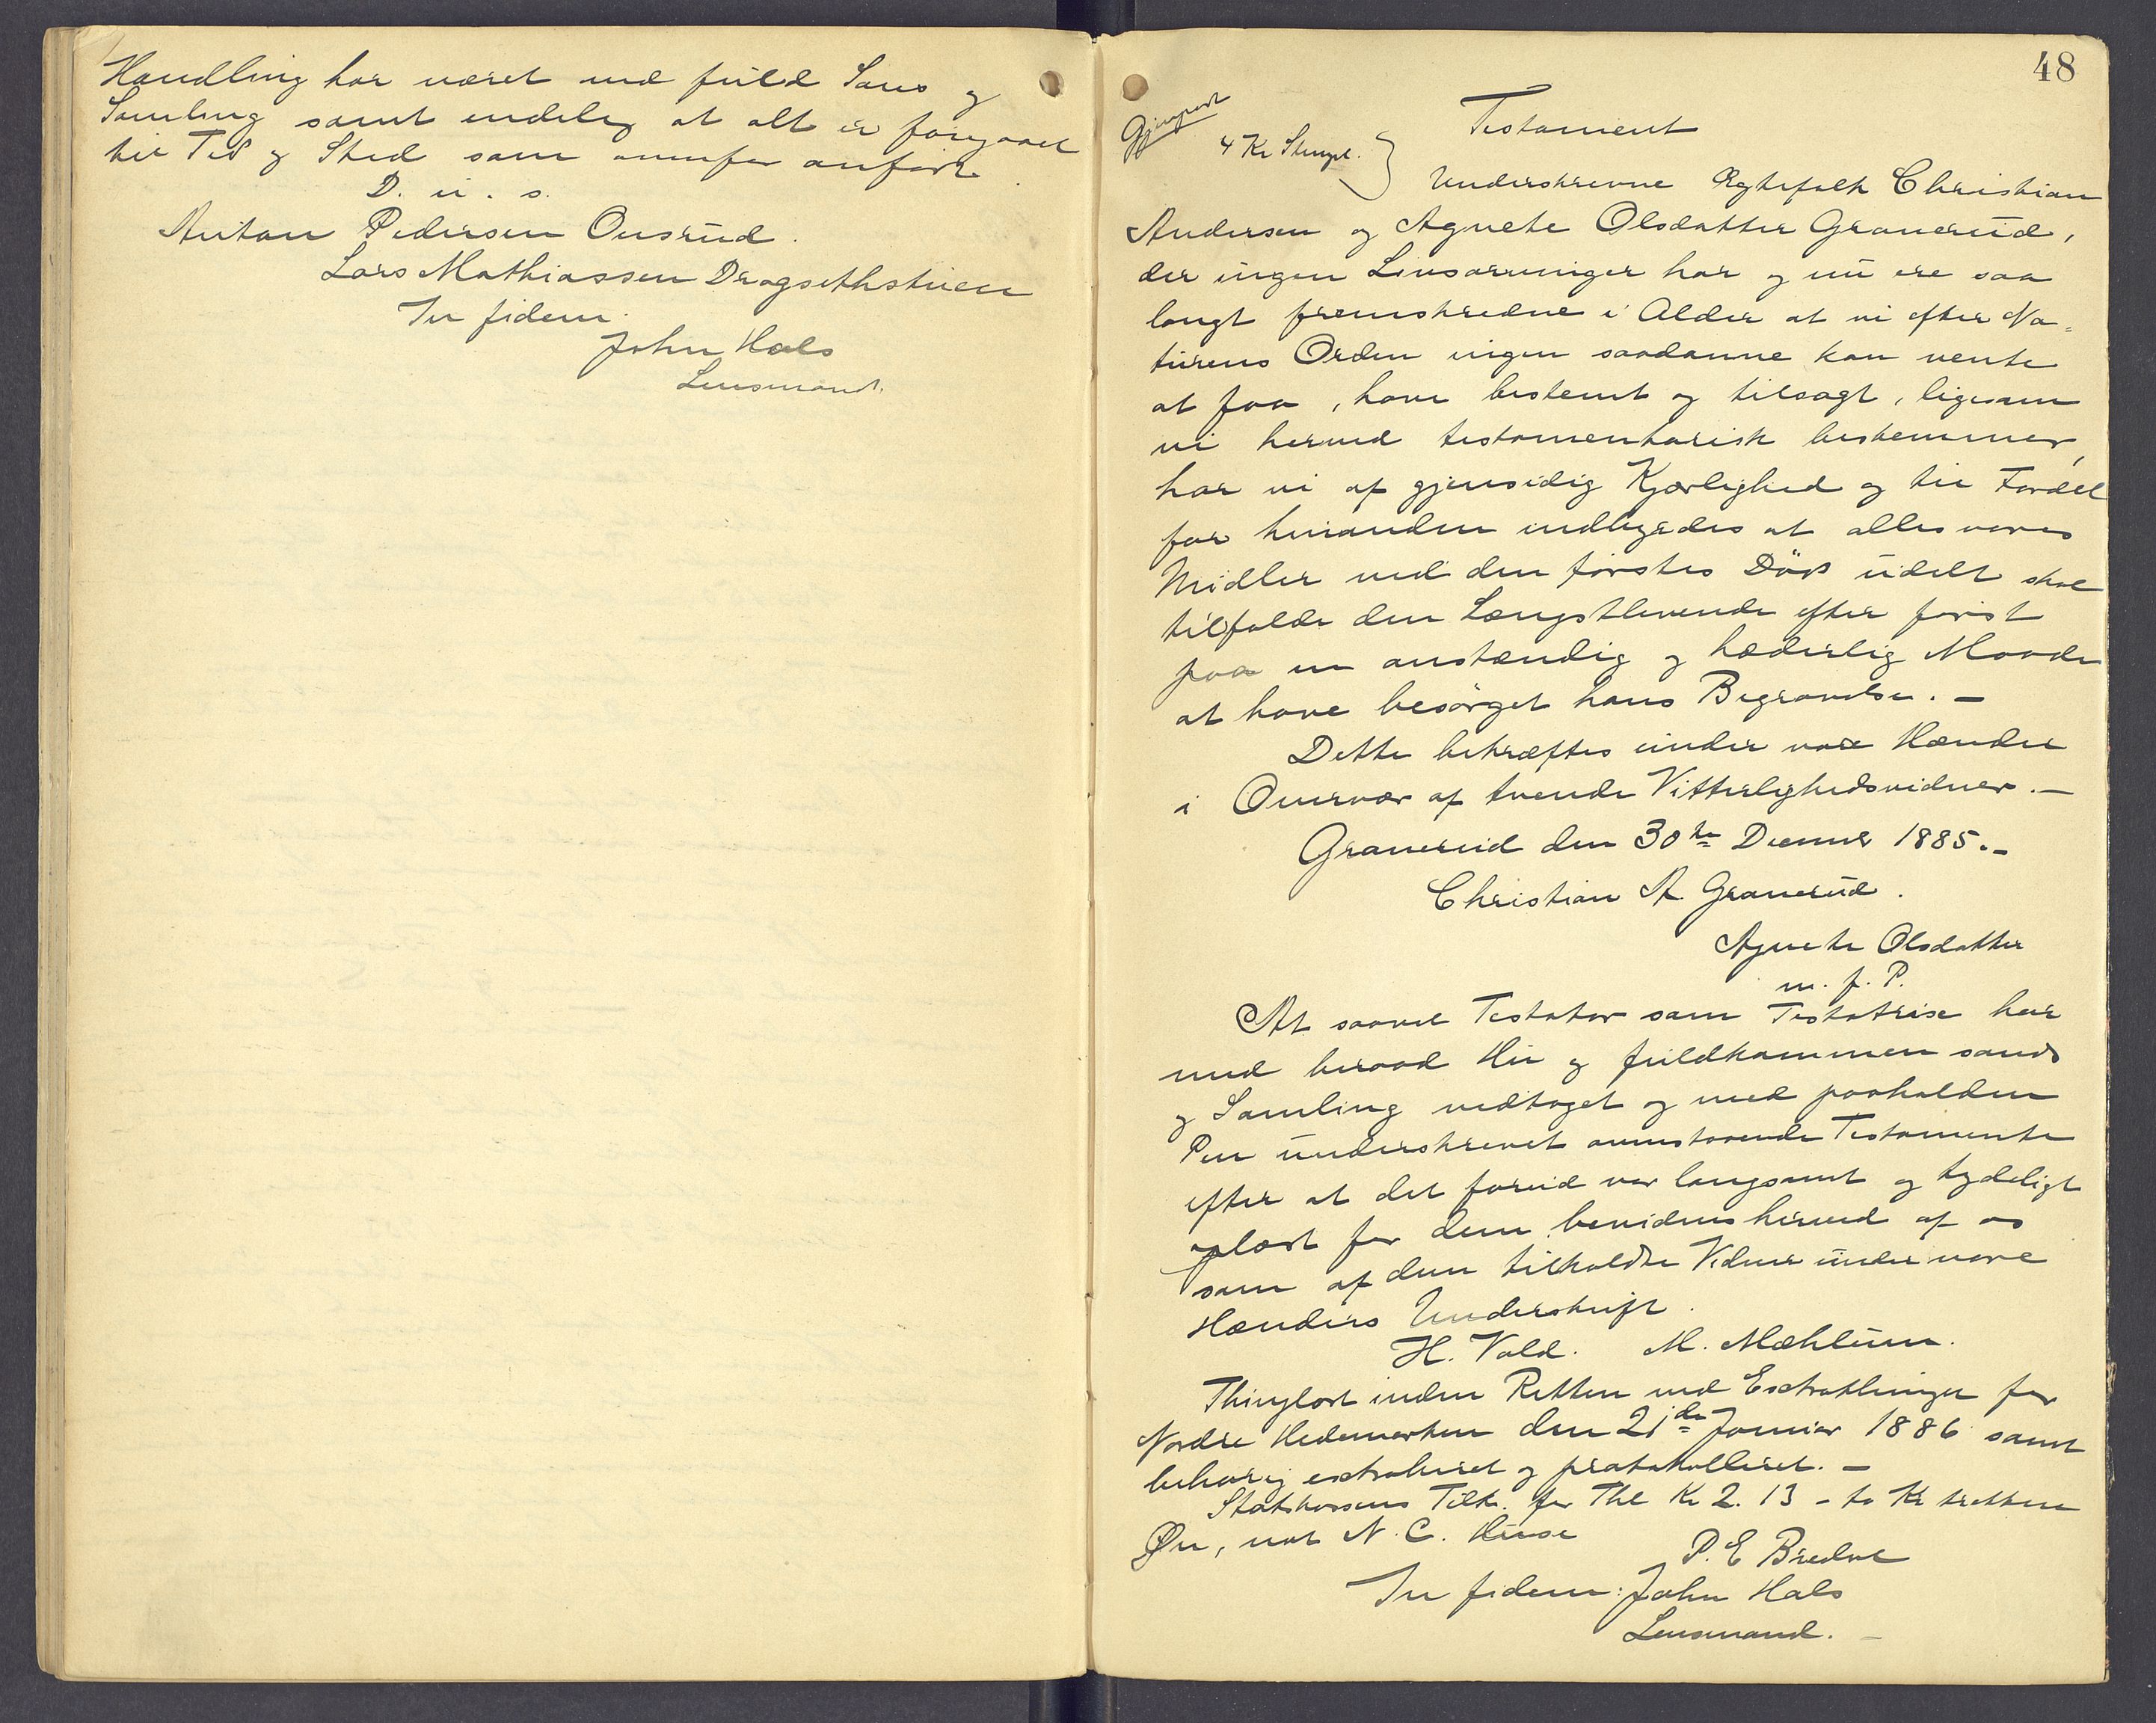 Handling har været ved fuld Sans og
Samling samt endelig at alt er foregaaet
til Tid og Sted som ovenfor anført.
D. u. s.
Anton Pedersen Onsrud.
Lars Mathiassen Dragsethstuen
In fidem.
John Hals
Lensmand.
48
4 Kr Stempel. }
Testament
Underskrevne Ægtefolk Christian
Andersen og Agnete Olsdatter Granerud,
der ingen Livsarvinger har og nu ere saa
langt fremskredne i Alder at vi efter Na-
turens Orden ingen saadanne kan vente
at faa, have bestemt og tilsagt, ligesom
vi herved testamentarisk bestemmer,
har vi af gjensidig Kjærlighed og til Fordel
for hinanden indbyrdes at alles vores
Midler ved den førstes Død udelt skal
tilfalde den Længstlevende efter først
paa en anstændig og hæderlig Maade
at have besørget hans Begravelse. —
Dette bekræftes under vore Hænder
i Overvær af tvende Vitterlighedsvidner. —
Granerud den 30te Decembr 1885. –
Christian A. Granerud.
Agnete Olsdatter
m. f. P.
At saavel Testator som Testatrise har
med beraad Hu og fuldkommen sands
og Samling vedtaget og med paaholden
Pen underskrevet ovenstaaende Testamente
efter at det forud var langsomt og tydeligt
oplæst for dem, bevidnes herved af os
som af dem tilkaldte Vidner under vore
Hænders Underskrift.
H. Vold. M. Mæhlum.
Thinglæst inden Retten ved Extrathinget for
Nordre Hedemarken den 21de Januar 1886 samt
behørig extraheret og protokolleret. —
Statskassens Tilk. for Thl Kr 2. 13 - to Kr tretten
Øre, not N. C. Huse
P. E Bredvel
In fidem: John Hals
Lensmand. –